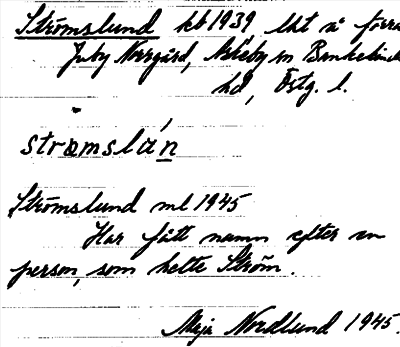 Strömslund kb 1939, lht å förra
Juby Norrgård, Åtvids sn Bankekinds
hd, Östg. l.
strømslán
Strömslund ml 1945
Har fått namn efter en
person, som hette Ström.
Maja Nordlund 1945.